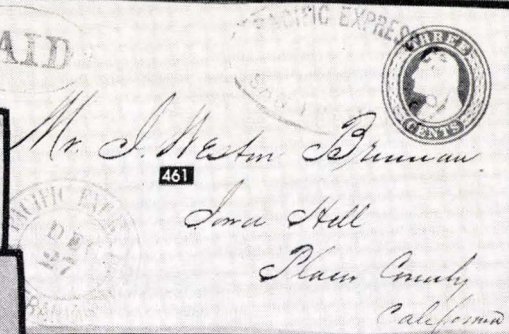 PAID
PACIFIC EXPRESS
THREE
CENTS
Mr. J. Weston Brennan
461
Iowa Hill
Placer County
California
PACIFIC EXPRESS
DEC
27